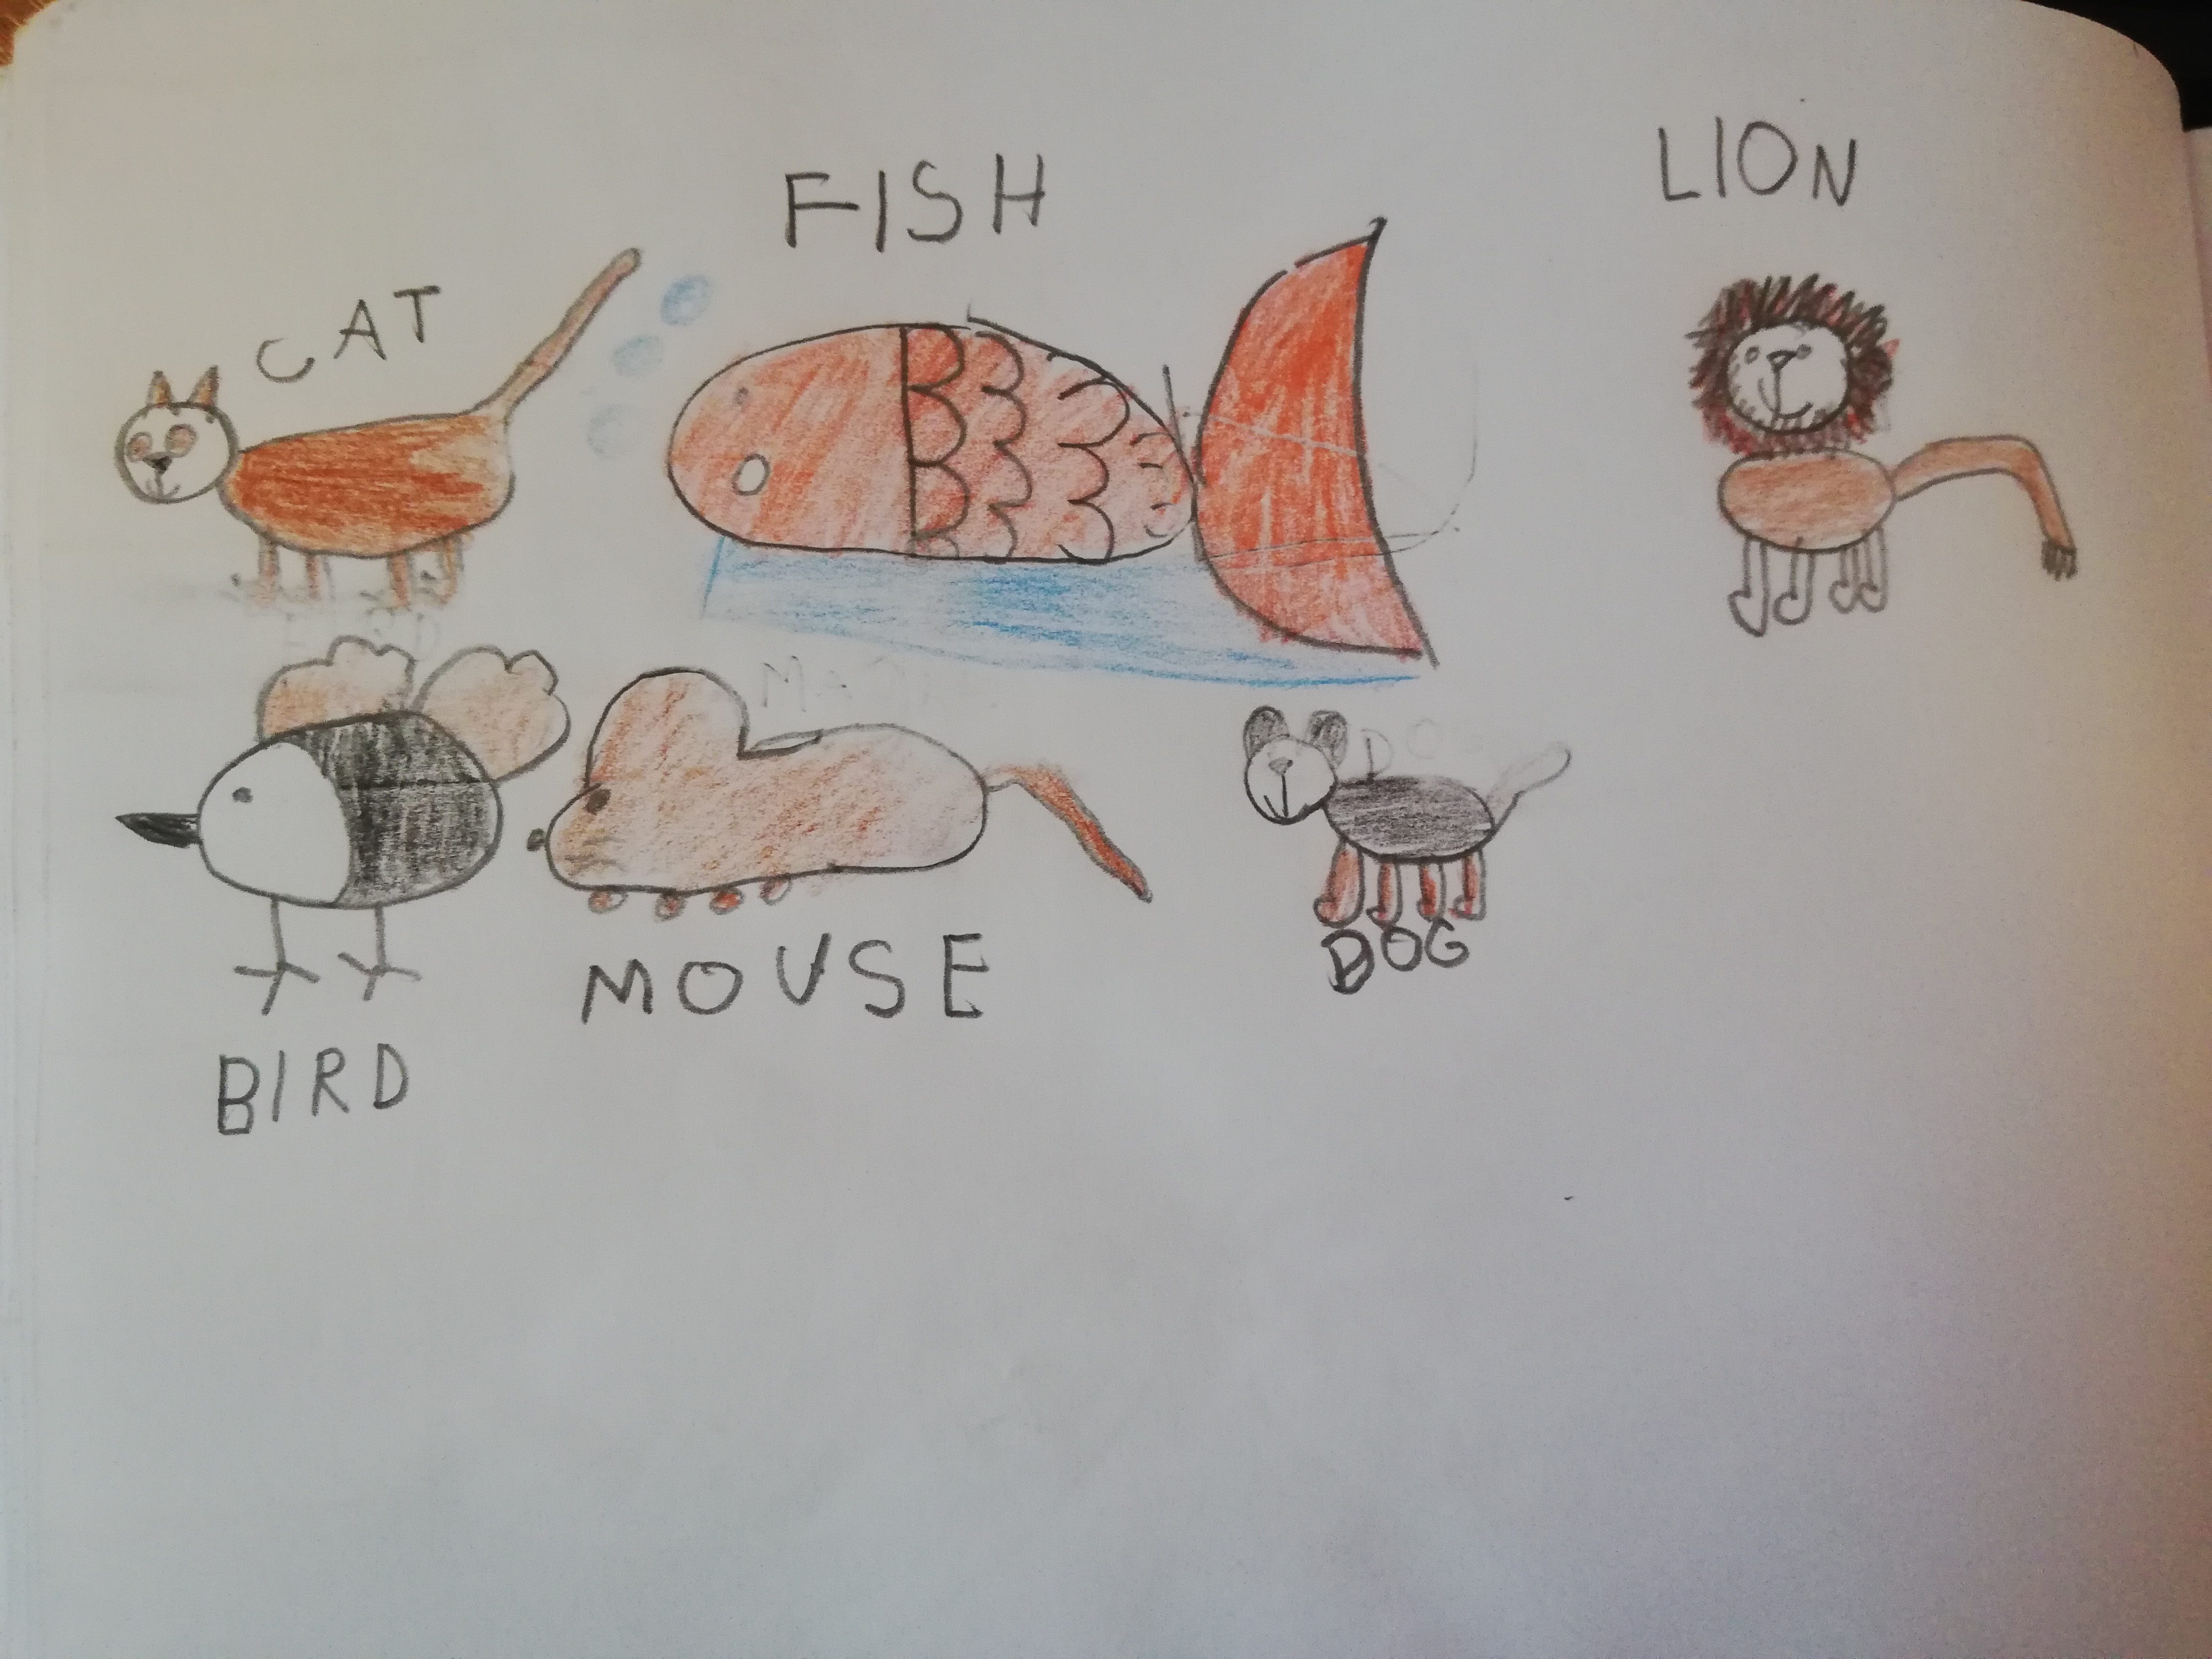 LION
FISH
CAT
DOG
MOUSE
BIRD